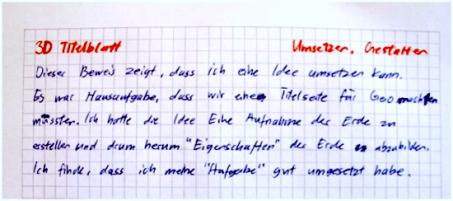 3D Titelblatt Umsetzen, Gestalten
Dieser Beweis zeigt, dass ich eine Idee umsetzen kann.
Es war Hausaufgabe, dass wir eine Titelseite für Geo machen
mussten. Ich hatte die Idee Eine Aufnahme der Erde zu
erstellen und drum herum "Eigenschaften" der Erde abzubilden.
Ich finde, dass ich meine "Aufgabe" gut umgesetzt habe.